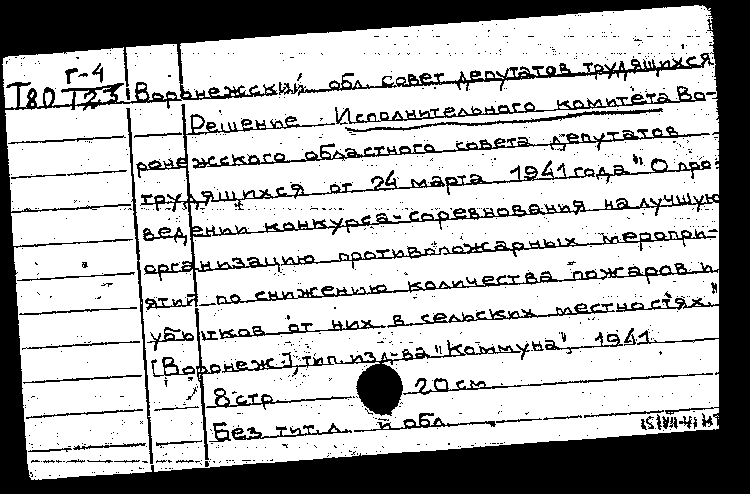 Г-4
Т80 Т23 Воронежский обл. совет депутатов трудящихся
Решение Исполнительного комитета Во-
ронежского областного совета депутатов
трудящихся от 24 марта 1941 года "О про-
ведении конкурса-соревнования на лучшую
организацию противопожарных меропри-
ятий по снижению количества пожаров и
убытков от них в сельских местностях."
[Воронеж], тип. изд-ва "Коммуна", 1941.
8 стр. 20 см.
Без тит. л. и обл.